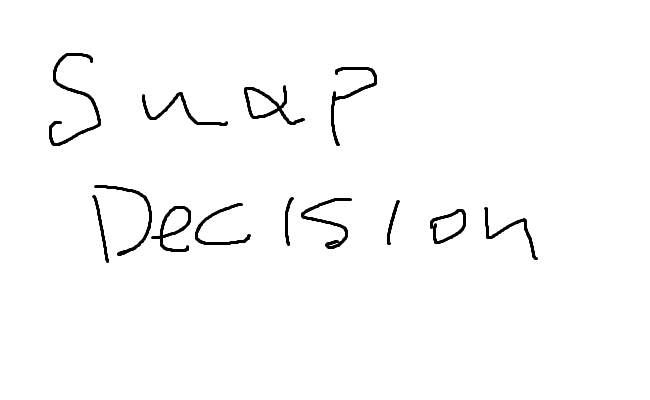 Snap
Decision